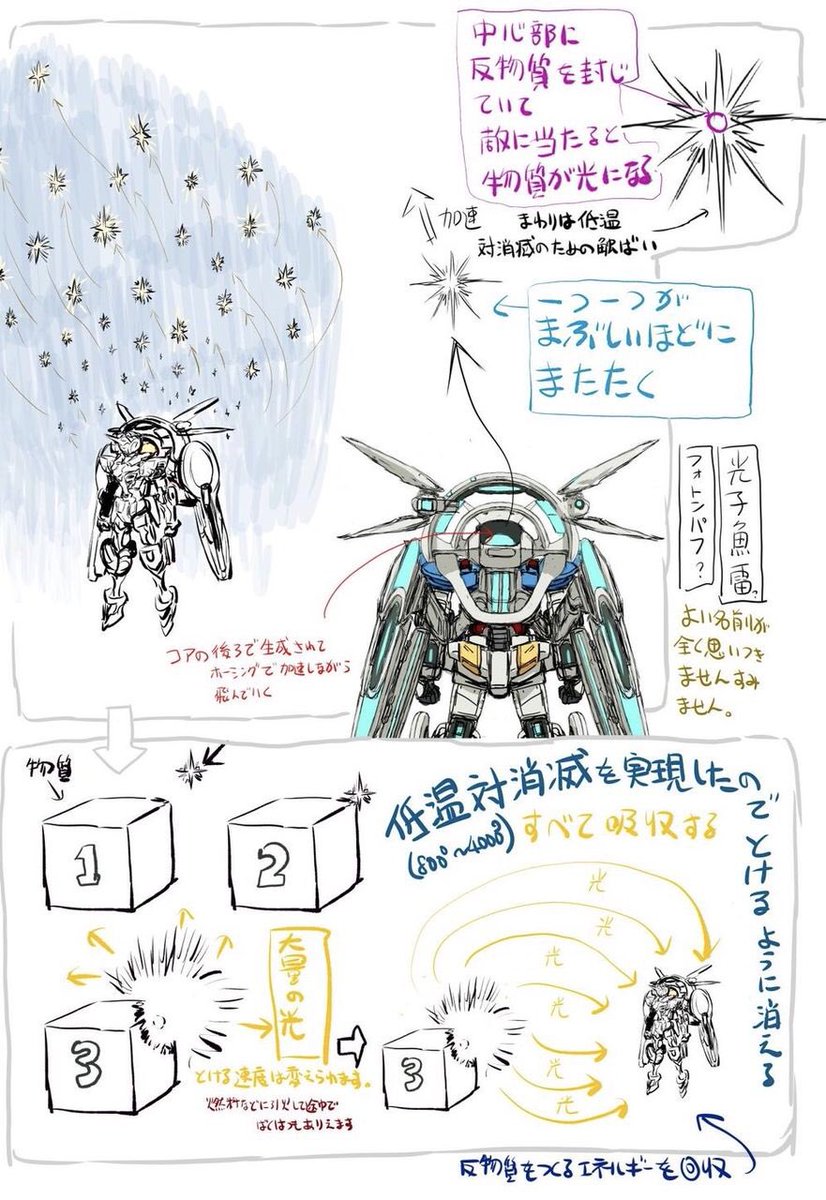 中心部に
反物質を封じ
ていて
敵に当たると
物質が光になる
加速
まわりは低温
対消滅のための
一つ一つが
まぶしいほどに
またたく
光子魚雷?
フォトンパフ?
よい名前が
全く思いつき
ませんすみ
ません。
コアの後ろで生成されて
ホーミングで加速しながら
飛んでいく
物質
1
2
低温対消滅を実現したので
とけるように消える
(800°~4000°)
すべて吸収する
3
大量の光
とける速度は変えられます。
燃料などに引火して途中で
ばくはつもありえます
3
光
光
光
光
光
光
光
反物質をつくるエネルギーを回収